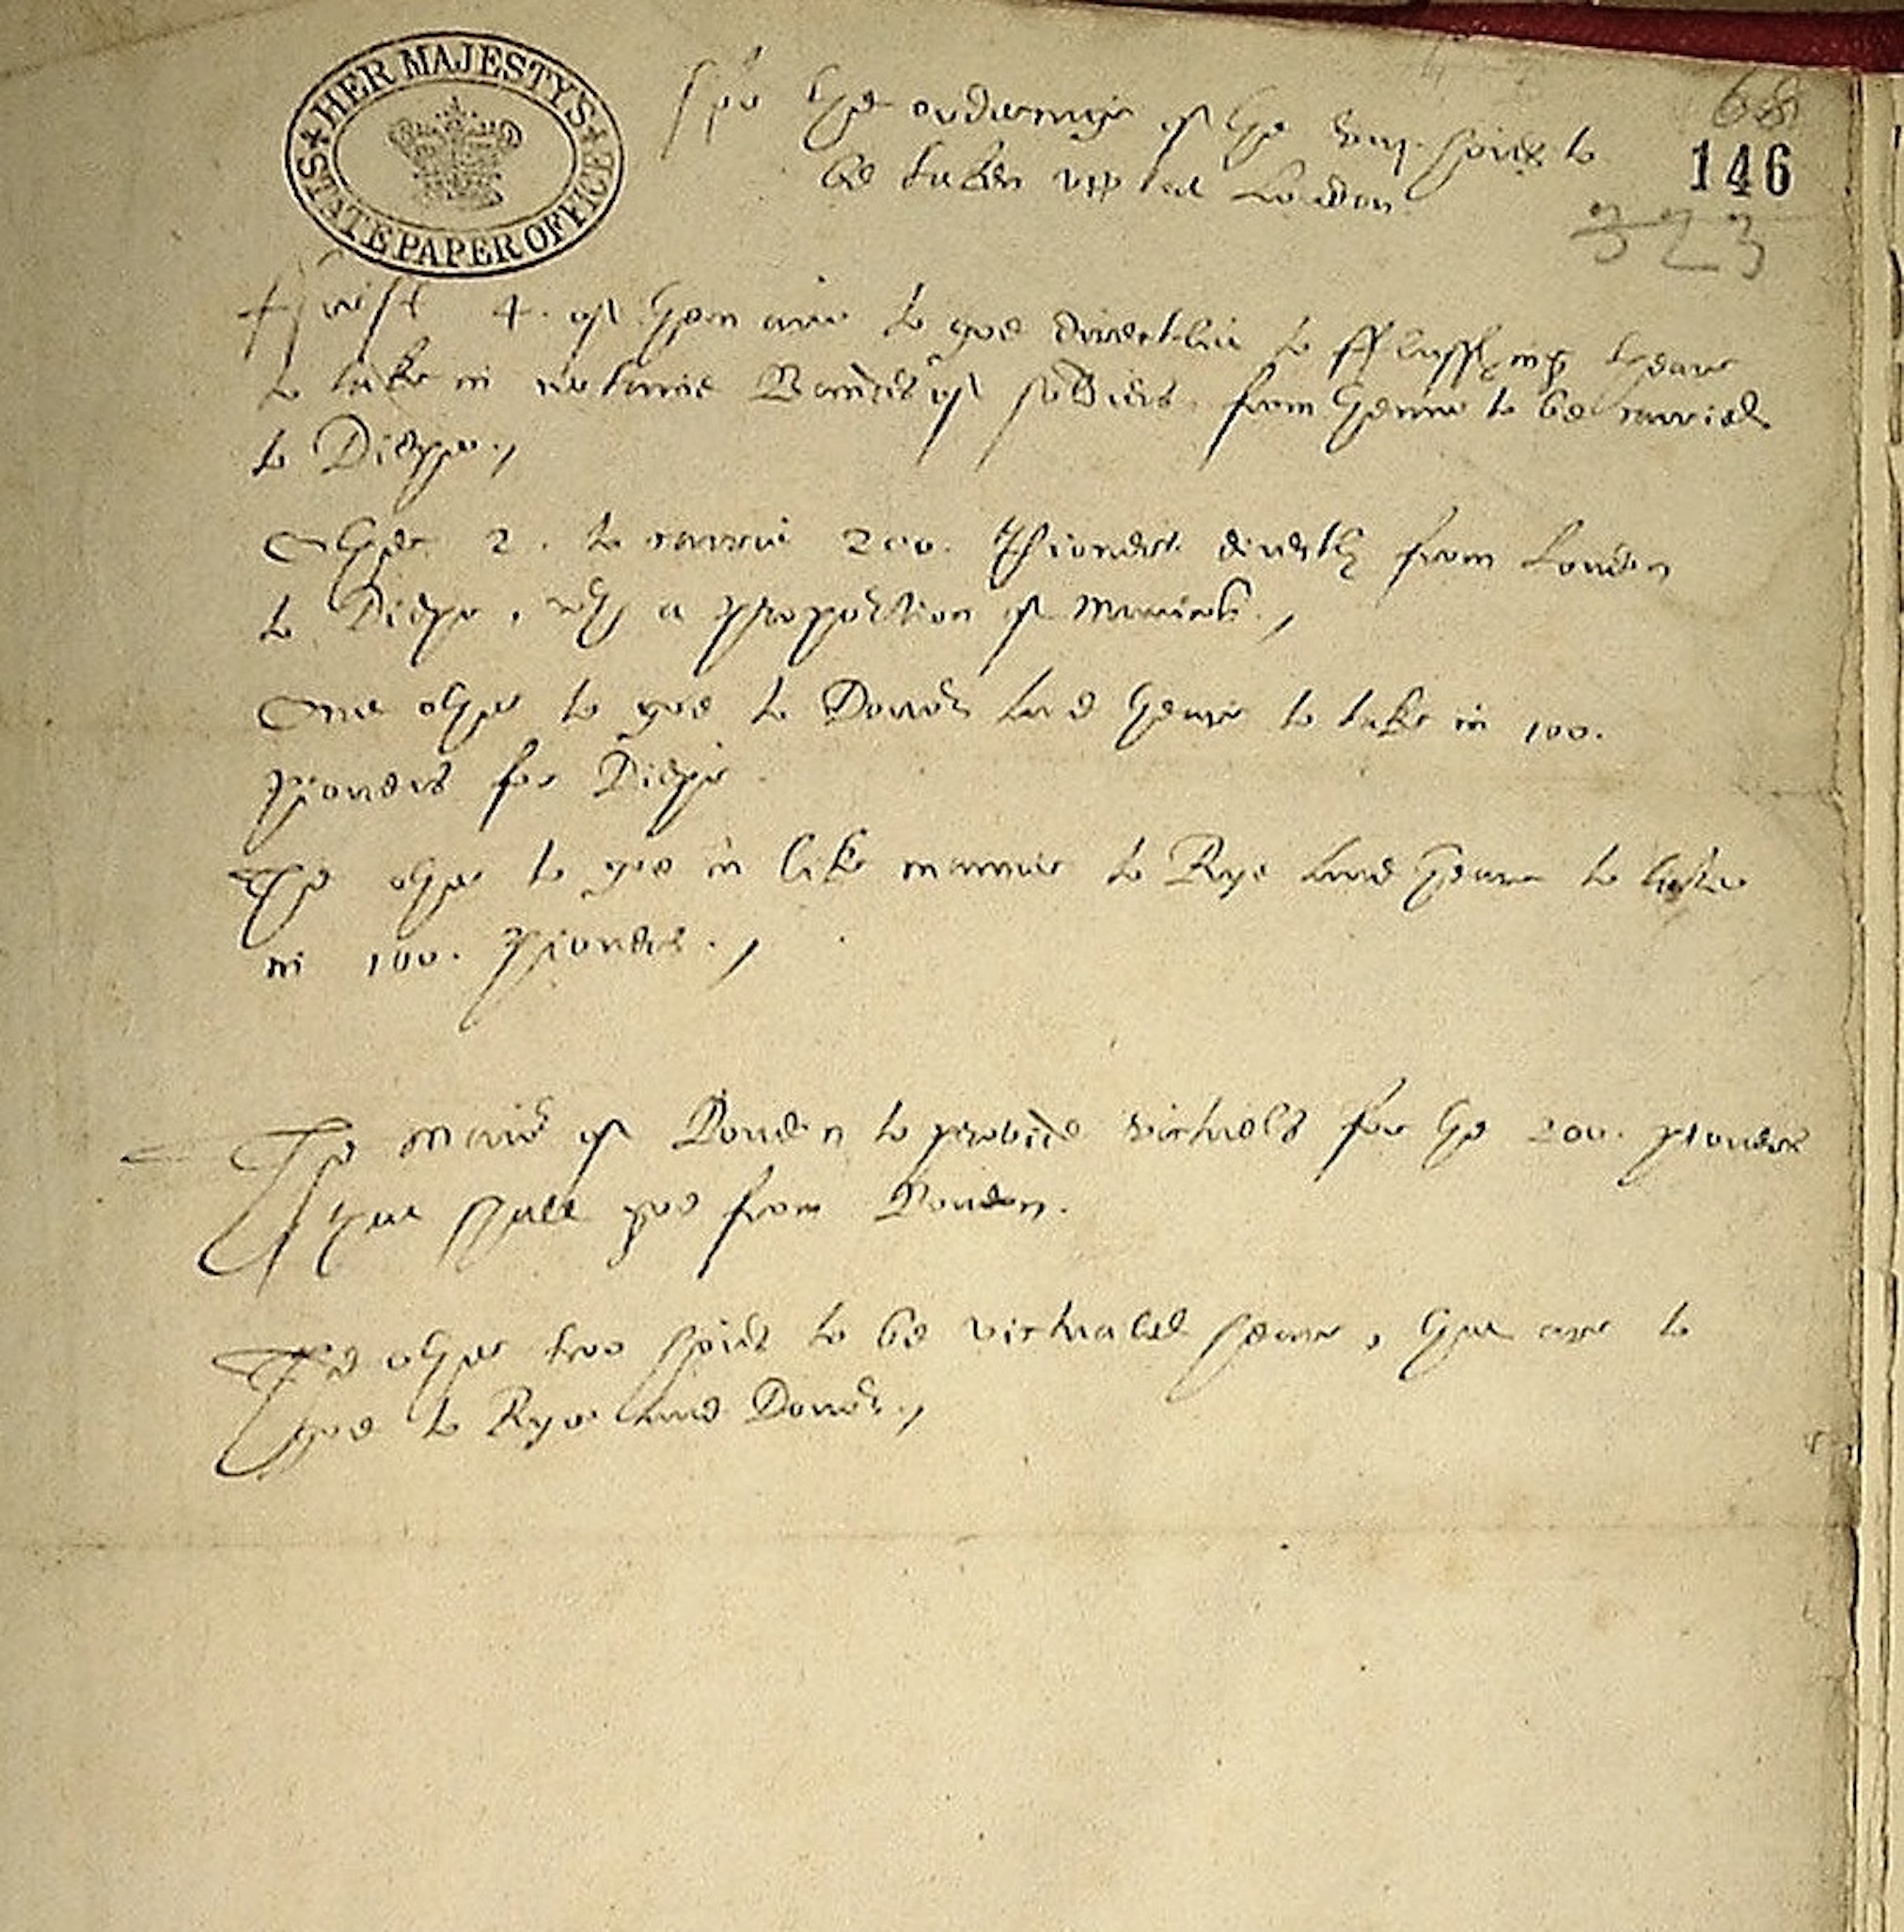 HER MAJESTY'S STATE PAPER OFFICE
68
for the orderinge of the viij. shipps to
146
be taken vpp at London
323
First 4. of them are to goe directlie to fflusshing theare
to take in certaine Bandes of soldiers, from thence to be caried
to Dieppe.,
Other 2. to carrie 200. Pioners directly from London
to Diepe, wth a proportion of
One other to goe to Dover and theare to take in 100.
pioners for Diepe
The other to goe in like manner to Rye and theare to take
in 100. Pioners.,
The Maior of London to provide victuells for the 200. pioners
that shall goe from London.
The other two shipps to be victualed heare, that are to
goe to Rye and Dover.,